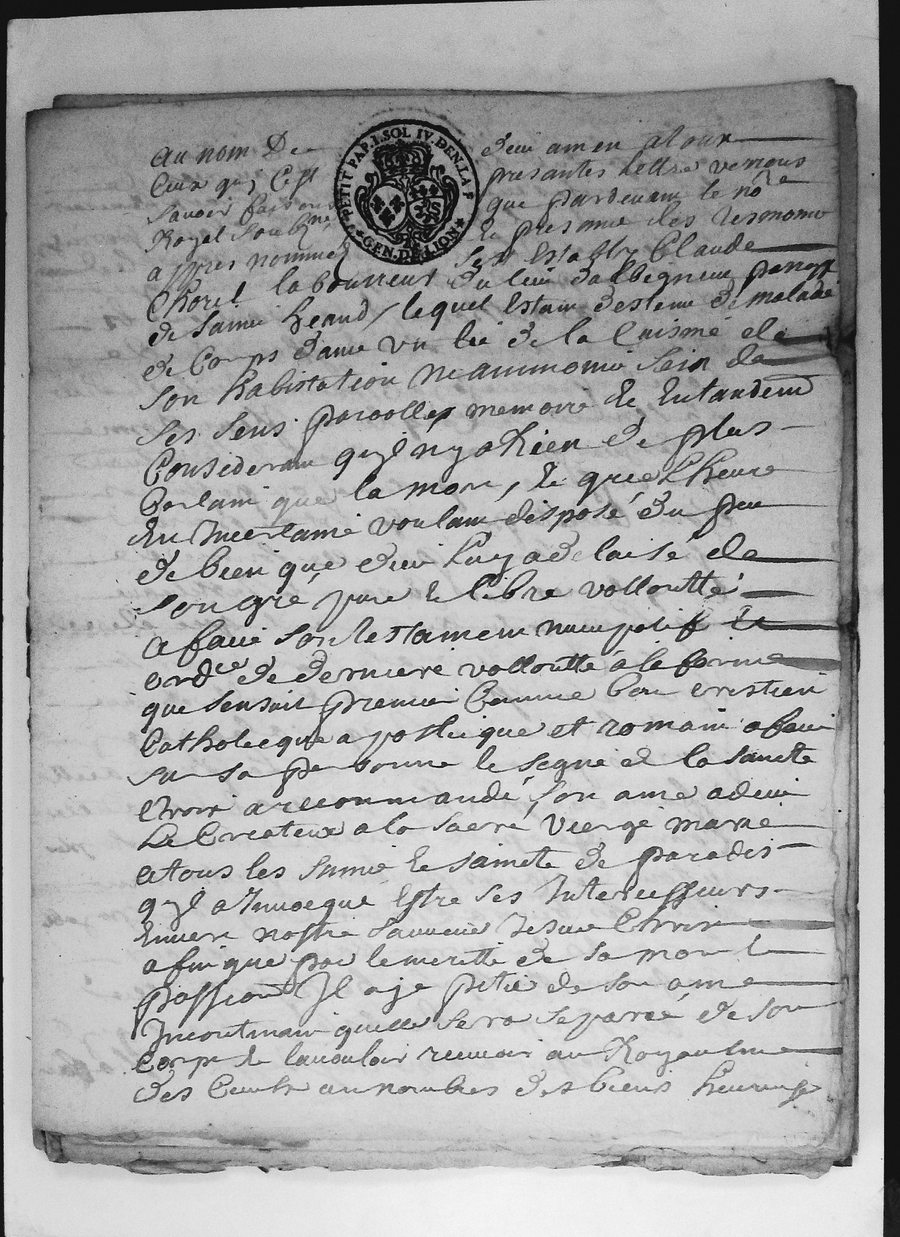 PETIT PAP. 1. SOL IV. DEN. LA F
GEN. DE LION
au nom De Dieu amen a tous
Ceux qui Ces presantes lettre verrons
Savoir faisons que pardevant le no.re
Royal soub.né et presance des tesmoins
appres nommes s'est Estably Claude
laboureur du lieu d'albegneux paroisse
de Saint heand, lequel Estant destenu de maladie
de Corps dans un lié de la Cuisine de
son habistation neanmoins sein de
ses sens parolles memoire et Entandement
Considerant qu'il ny a Rien de plus
Certain que la mort, et que L'heure
En Incertaine voulant disposé du peu
de bien que dieu Luy a delaisé de
son gré, pure et libre vollontté
a faict son testament nuncupatif et
ord.ce de derniere vollontté a la forme
que sensuit premier Comme bon crestien
Catholicque apostlicque et romain a faict
sur sa personne le segne de la saincte
Croix a recommandé, son ame a dieu
Le Createur a la sacré vierge marie
a tous les saints et saincte de paradis
qu'il a Invocqué Estre ses Intercesseurs
Envers nostre sauveur Jesus Christ
afin que par le meritte de sa mort et
passion Il aje pitié de son ame
Incontinant quelle sera separée de son
Corps et la vouloir recevoir au Royaulme
des Cieux au nombre des biens heureuse